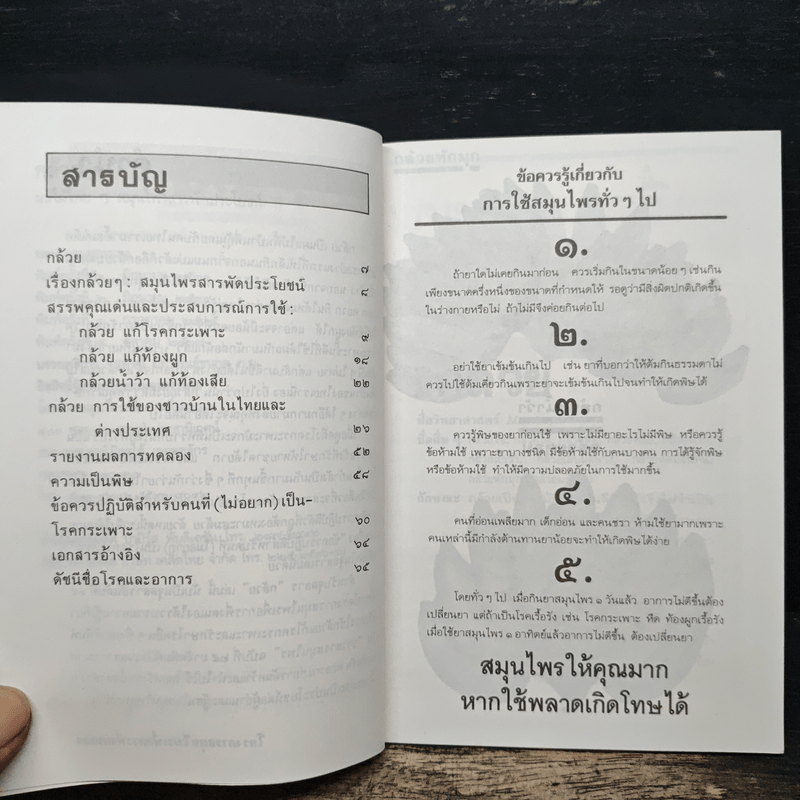 สารบัญ
กล้วย ๗
เรื่องกล้วยๆ : สมุนไพรสารพัดประโยชน์ ๘
สรรพคุณเด่นและประสบการณ์การใช้ :
กล้วย แก้โรคกระเพาะ ๙
กล้วย แก้ท้องผูก ๑๘
กล้วยน้ำว้า แก้ท้องเสีย ๒๒
กล้วย การใช้ของชาวบ้านในไทยและ
ต่างประเทศ ๒๖
รายงานผลการทดลอง ๕๒
ความเป็นพิษ ๕๘
ข้อควรปฏิบัติสำหรับคนที่ (ไม่อยาก) เป็น-
โรคกระเพาะ ๖๐
เอกสารอ้างอิง ๖๔
ดัชนีชื่อโรคและอาการ ๖๕
ข้อควรรู้เกี่ยวกับ
การใช้สมุนไพรทั่ว ๆ ไป
๑.
ถ้ายาใดไม่เคยกินมาก่อน ควรเริ่มกินในขนาดน้อย ๆ เช่นกิน
เพียงขนาดครึ่งหนึ่งของขนาดที่กำหนดให้ รอดูว่ามีสิ่งผิดปกติเกิดขึ้น
ในร่างกายหรือไม่ ถ้าไม่มีจึงค่อยกินต่อไป
๒.
อย่าใช้ยาเข้มข้นเกินไป เช่น ยาที่บอกว่าให้ต้มกินธรรมดาไม่
ควรไปใช้ต้มเคี่ยวกินเพราะยาจะเข้มข้นเกินไปจนทำให้เกิดพิษได้
๓.
ควรรู้พิษของยาก่อนใช้ เพราะไม่มียาอะไรไม่มีพิษ หรือควรรู้
ข้อห้ามใช้ เพราะยาบางชนิด มีข้อห้ามใช้กับคนบางคน การได้รู้จักพิษ
หรือข้อห้ามใช้ ทำให้มีความปลอดภัยในการใช้มากขึ้น
๔.
คนที่อ่อนเพลียมาก เด็กอ่อน และคนชรา ห้ามใช้ยามากเพราะ
คนเหล่านี้มีกำลังต้านทานยาน้อยจะทำให้เกิดพิษได้ง่าย
๕.
โดยทั่ว ๆ ไป เมื่อกินยาสมุนไพร ๑ วันแล้ว อาการไม่ดีขึ้นต้อง
เปลี่ยนยา แต่ถ้าเป็นโรคเรื้อรัง เช่น โรคกระเพาะ หืด ท้องผูกเรื้อรัง
เมื่อใช้ยาสมุนไพร ๑ อาทิตย์แล้วอาการไม่ดีขึ้น ต้องเปลี่ยนยา
สมุนไพรให้คุณมาก
หากใช้พลาดเกิดโทษได้